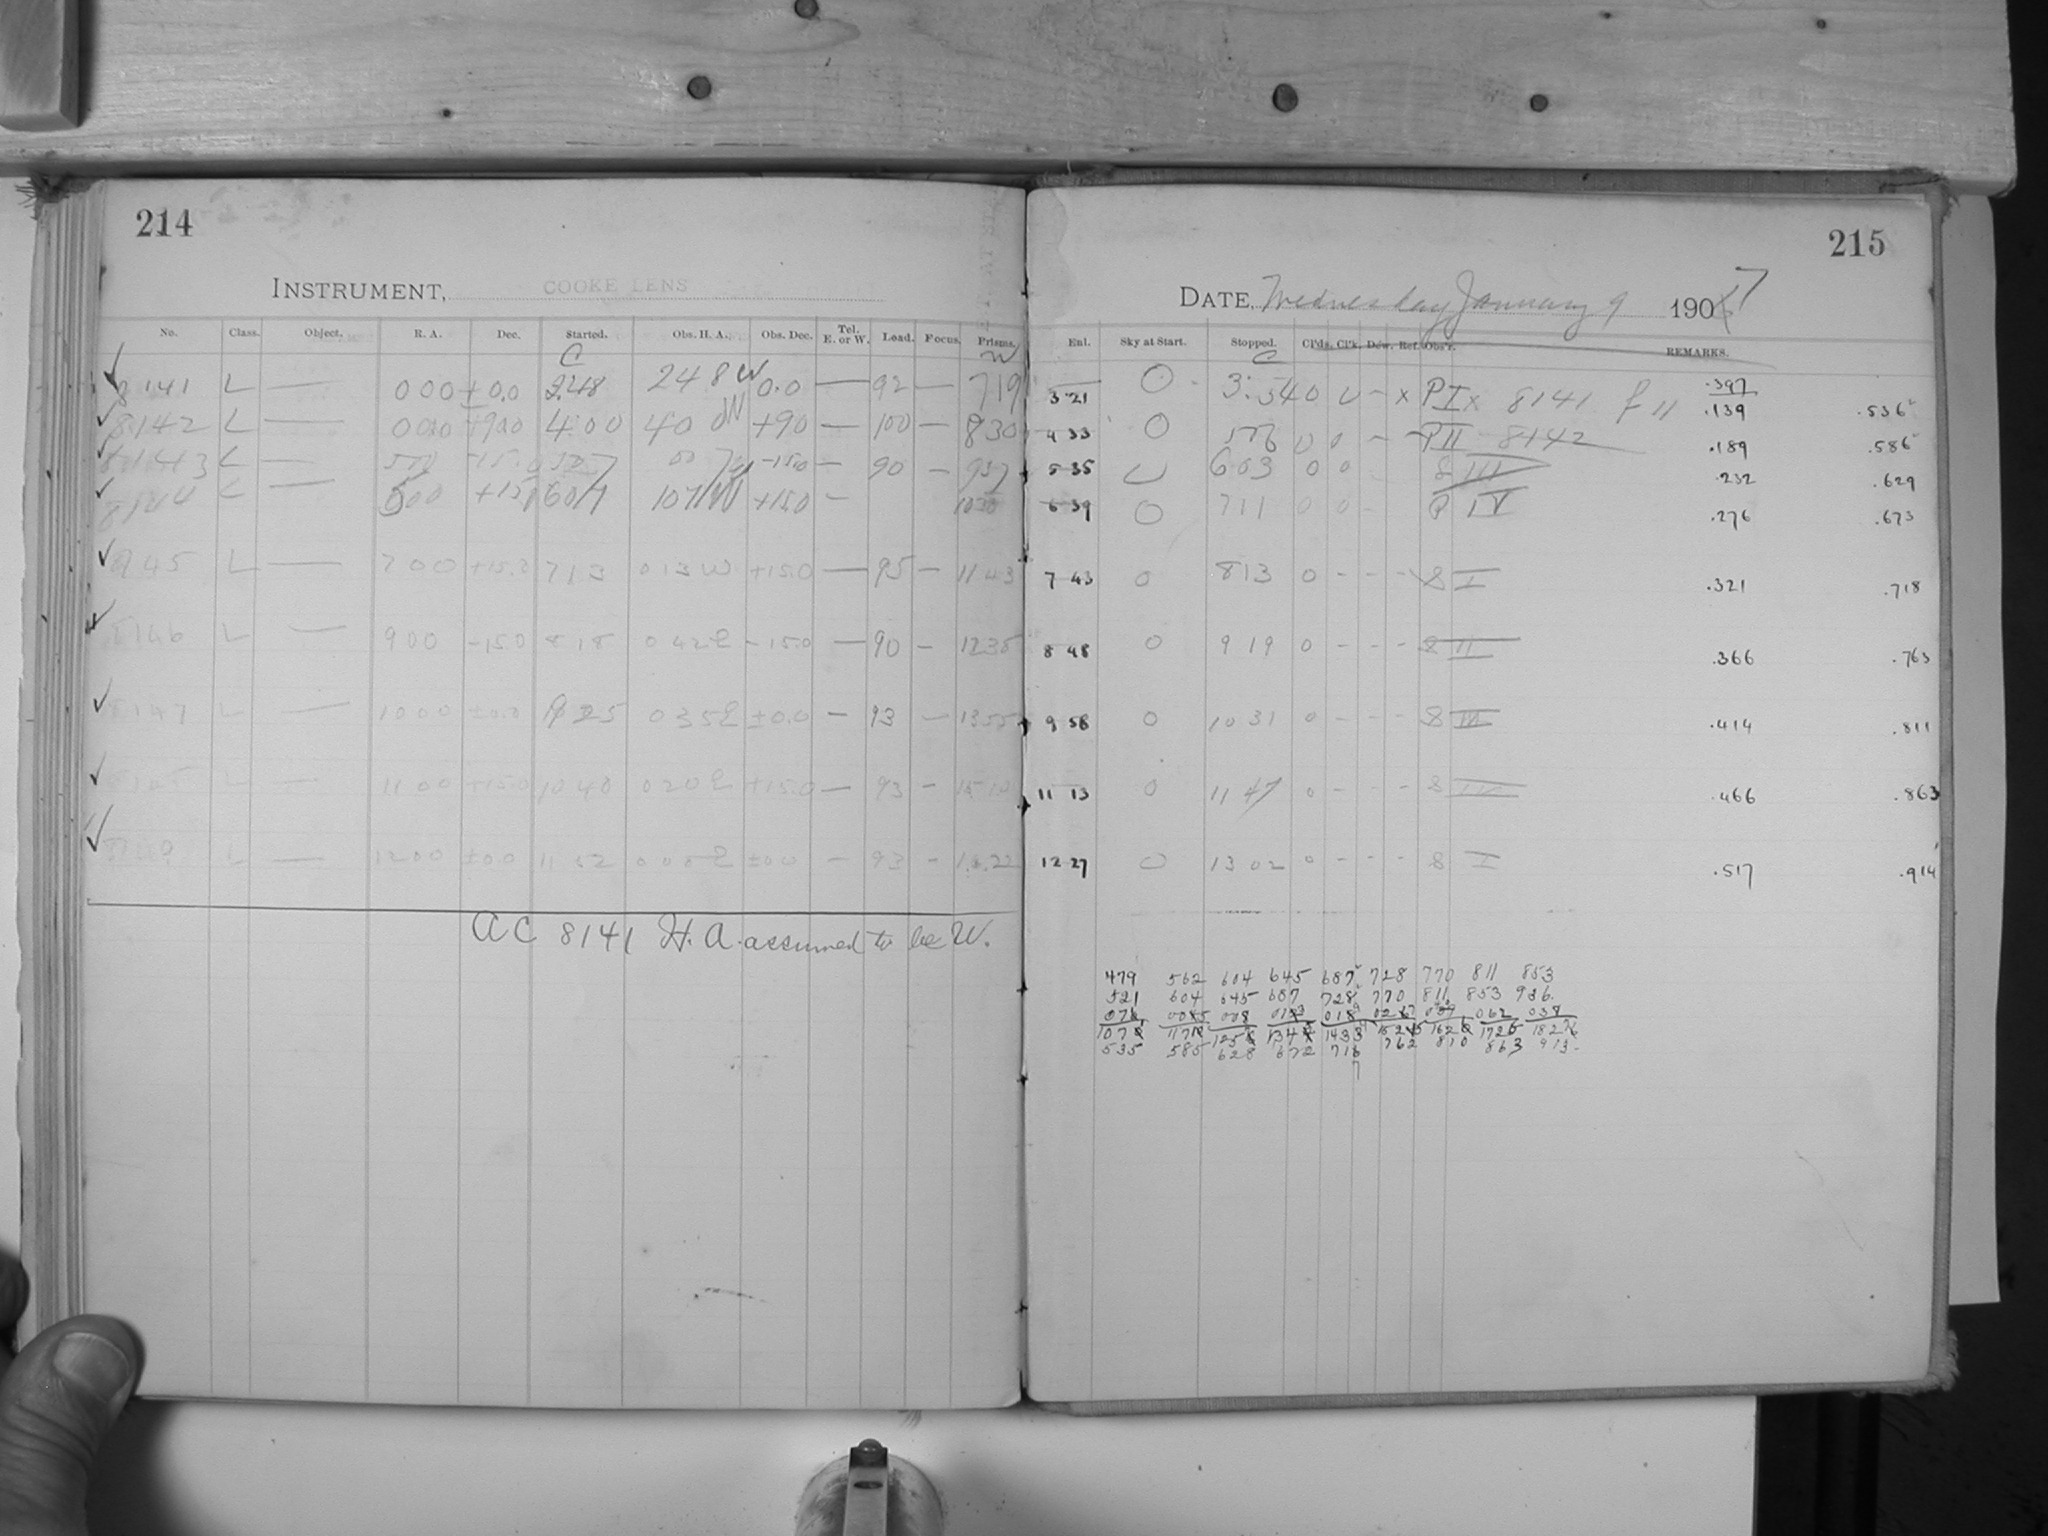 214
INSTRUMENT, COOKE LENS
No. Class. Object. R. A. Dec. Started. Obs. H. A. Obs. Dec. Tel. E. or W. Load. Focus. Prisms.
C
8141 L — 0 00 ±0.0 2 48 2 48 W 0.0 — 92 — 719
8142 L — 000 +90.0 4 00 4 0 0 W +90 — 100 — 830
L — -15.0 — 90 — 937
8144 L — 500 +15.0 607 107 W +15.0 —
8145 L — 700 +15.0 713 0 13 W +15.0 — 95 — 11 43
8146 L — 900 -15.0 8 18 0 42 E -15.0 — 90 — 12 35
8147 L — 1000 ±0.0 9 25 0 35 E ±0.0 — 93 — 13 55
L — 1100 +15.0 10 40 0 20 E +15.0 — 93 — 15 10
L — 1200 ±0.0 11 52 0 08 E ±0.0 — 93 — 16 22
AC 8141 H. A. assumed to be W.
215
DATE, Wednesday January 9 1907
Enl. Sky at Start. Stopped. Cl'ds. Cl'k. Dew. Ref. Obs'r. REMARKS.
C
.397
3 21 O 3:54 0 0 - x P I x 8141 f 11 .139 .536
4 33 O 0 0 - P II 8142 .189 .586
5 35 603 0 0 - S III .232 .629
6 39 O 711 0 0 - P IV .276 .673
7 43 0 813 0 - - - S I .321 .718
8 48 0 9 19 0 - - - S II .366 .763
9 58 0 10 31 0 - - - S III .414 .811
11 13 0 11 47 0 - - - S IV .466 .863
12 27 0 13 02 0 - - - S I .517 .914
479 562 604 645 687 728 770 811 853
521 604 645 687 728 770 811 853 936
535 585 628 672 716 762 810 863 913
7